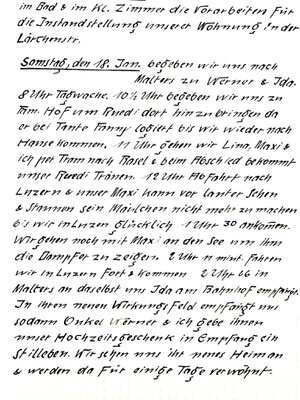 im Bad & im Kl. Zimmer die Vorarbeiten für
die Instandstellung unserer Wohnung in der
Lärchenstr.
Samstag, den 18. Jan. begeben wir uns nach
Malters zu Werner & Ida.
8 Uhr Tagwache. 10½ Uhr begeben wir uns zu
Fam. Hof um Ruedi dort hin zu bringen da
er bei Tante Fanny logiert bis wir wieder nach
Hause kommen. 11 Uhr gehen wir Lina, Maxi &
ich per Tram nach Basel & beim Abschied bekommt
unser Ruedi Tränen. 12 Uhr Abfahrt nach
Luzern & unser Maxi kann vor lauter Sehen
& Staunen sein Mäulchen nicht mehr zu machen
bis wir in Luzern glücklich 1 Uhr 30 ankommen.
Wir gehen noch mit Maxi an den See um ihm
die Dampfer zu zeigen. 2 Uhr 11 minf. fahren
wir in Luzern fort & kommen 2 Uhr 26 in
Malters an daselbst uns Ida am Bahnhof empfängt.
In ihren neuen Wirkungsfeld empfängt uns
sodann Onkel Werner & ich gebe ihnen
unser Hochzeitsgeschenk in Empfang ein
Stilleben. Wir sehen uns ihr neues Heiman
& werden da für einige Tage verwöhnt.